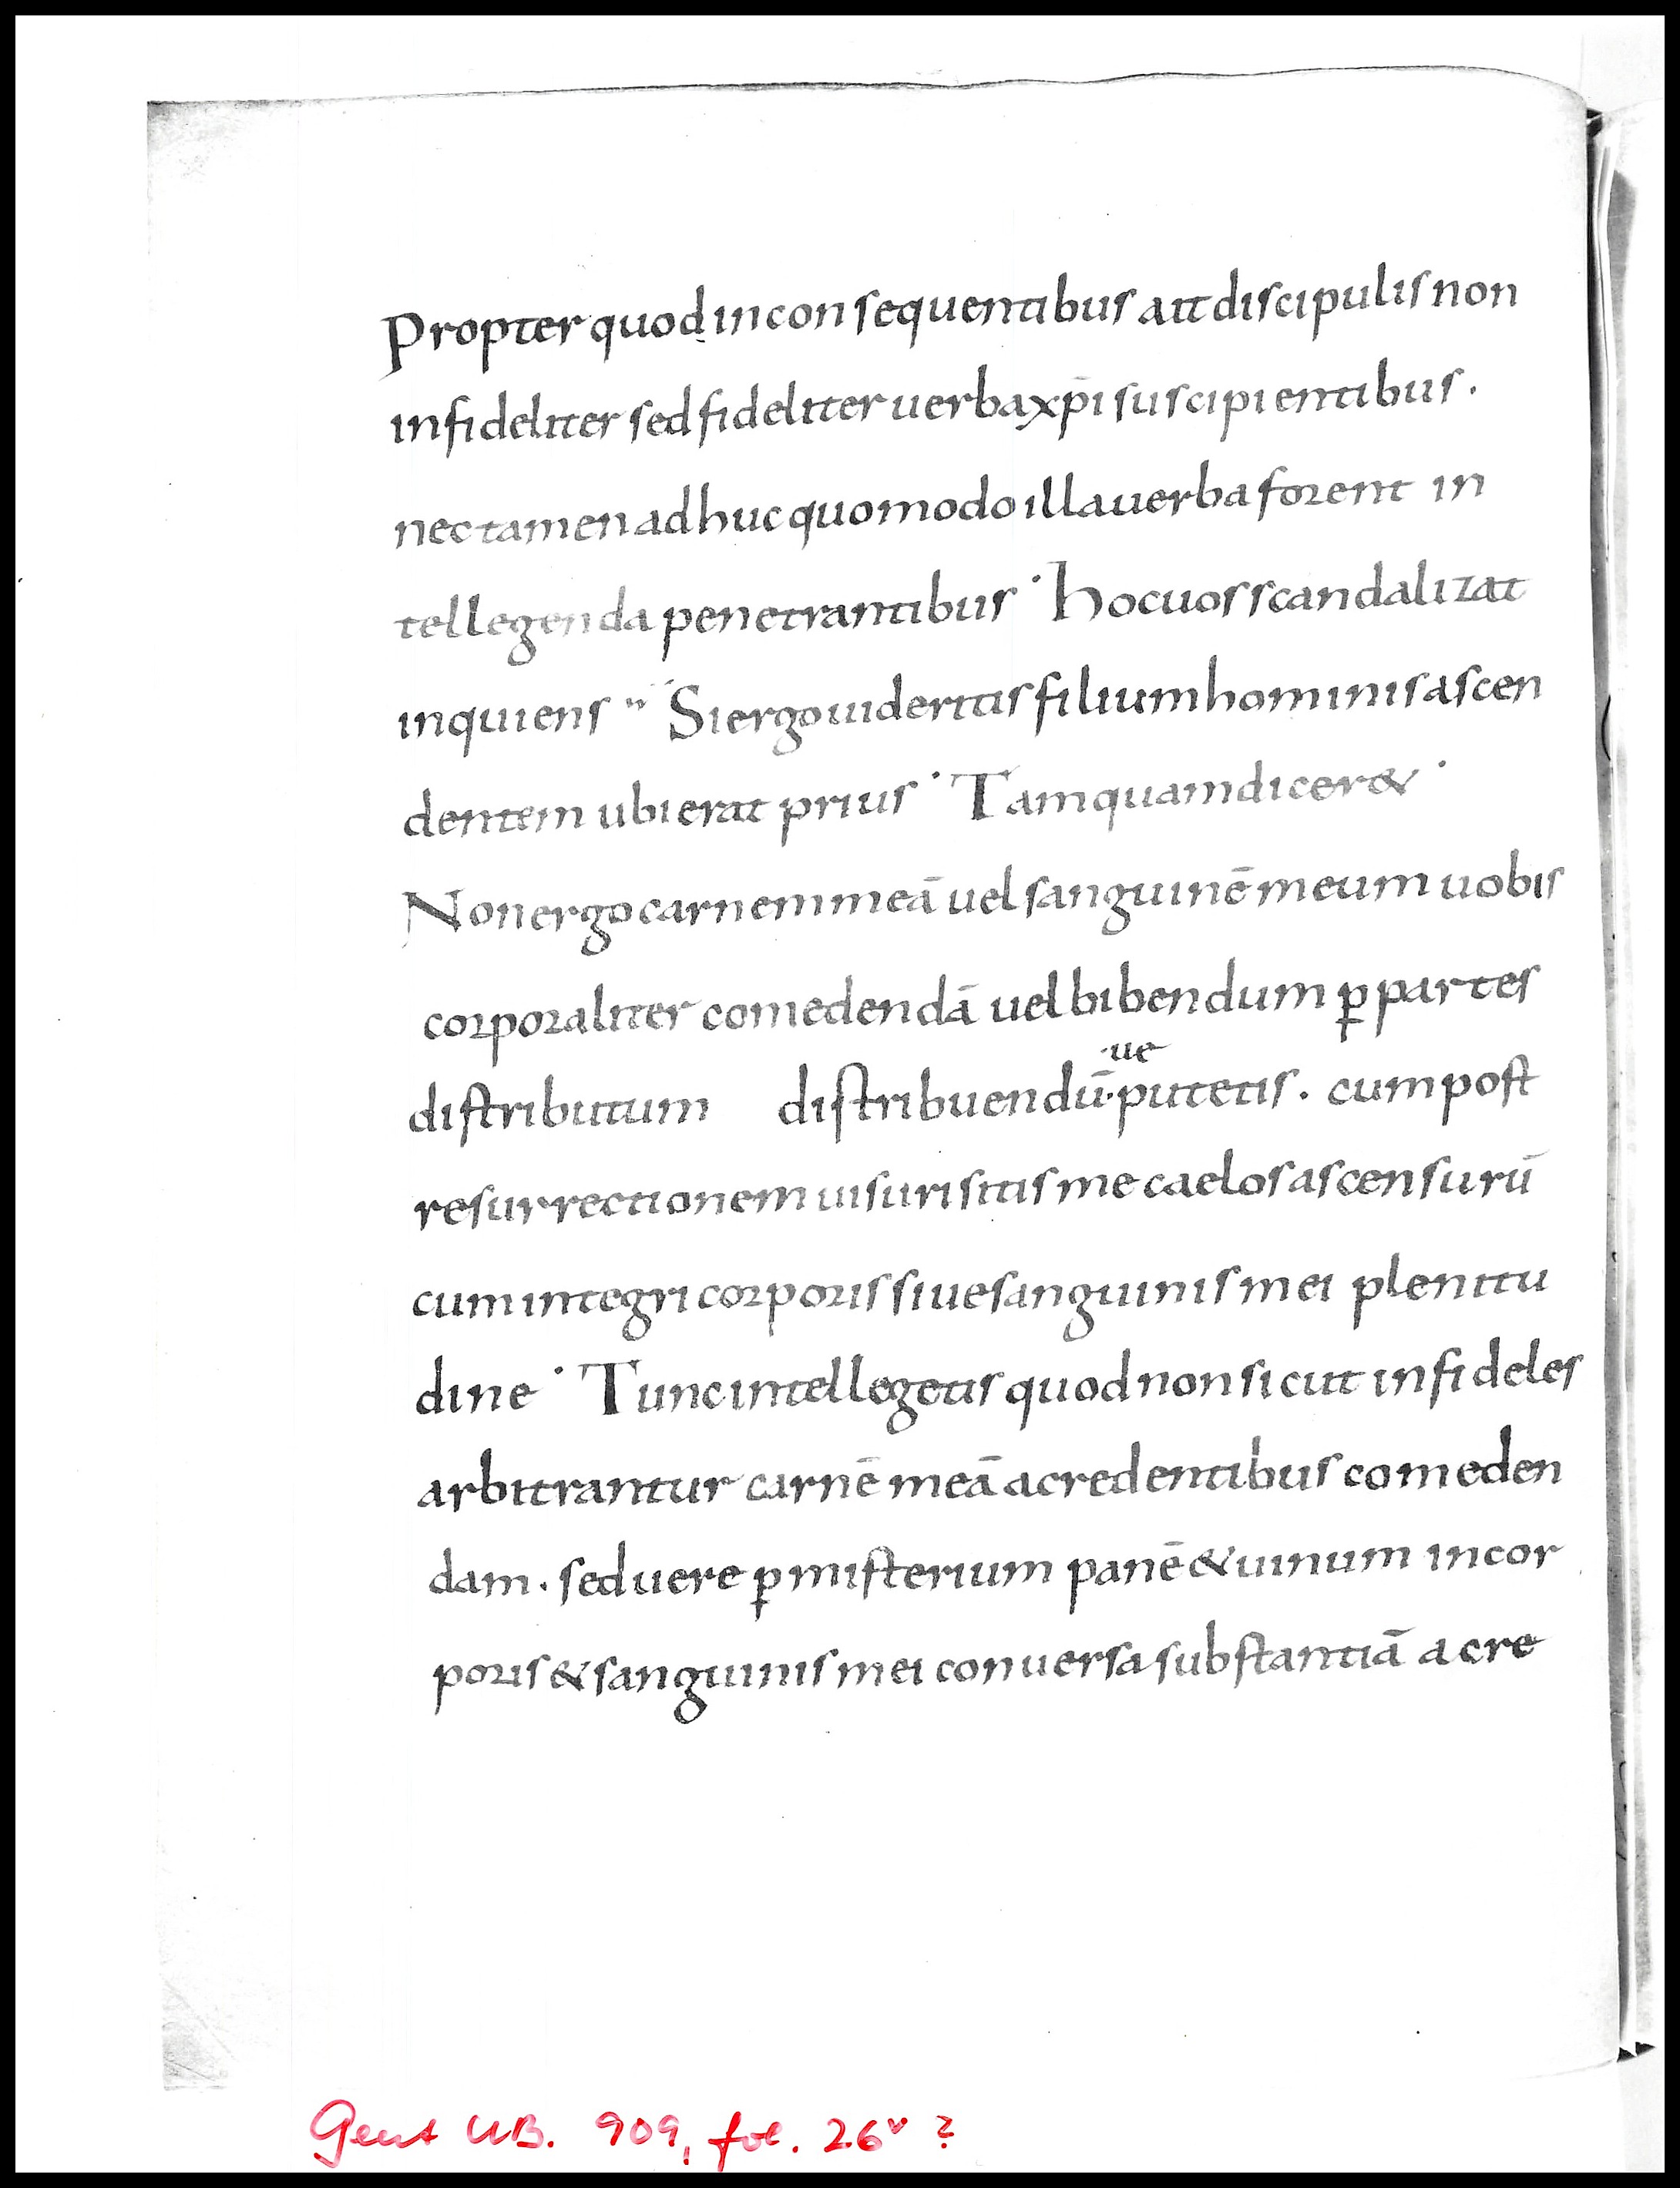 Propter quod in consequentibus ait discipulis non
infideliter sed fideliter uerba xp̄i suscipientibus.
nec tamen adhuc quomodo illa uerba forent in
tellegenda penetrantibus · hoc uos scandalizat
inquiens ·· Si ergo uideritis filium hominis ascen
dentem ubi erat prius · Tamquam dicer& ·
Non ergo carnem meā uel sanguinē meum uobis
corporaliter comedendā uel bibendum ꝑ partes
·ue
distributum distribuendū· putetis. cum post
resurrectionem uisuri sitis me caelos ascensurū
cum integri corporis siue sanguinis mei plenitu
dine · Tunc intellegetis quod non sicut infideles
arbitrantur carnē meā a credentibus comeden
dam. sed uere ꝑ misterium panē & uinum in cor
poris & sanguinis mei conuersa substantiā a cre
Gent UB. 909, fol. 26v ?